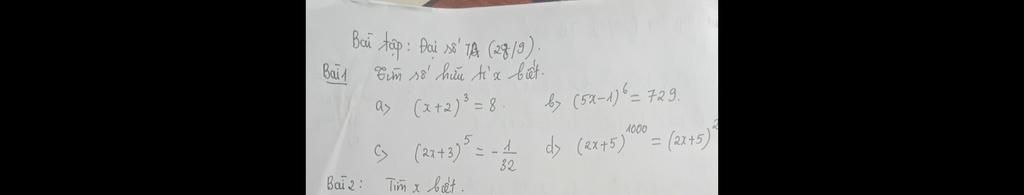 Bài tập: Đại số 7A (28/9).
Bài 1 Tìm số hữu tỉ x biết.
a> (x+2)^3 = 8. b> (5x-1)^6 = 729.
c> (2x+3)^5 = -1/32 d> (2x+5)^1000 = (2x+5)^2
Bài 2: Tìm x biết.